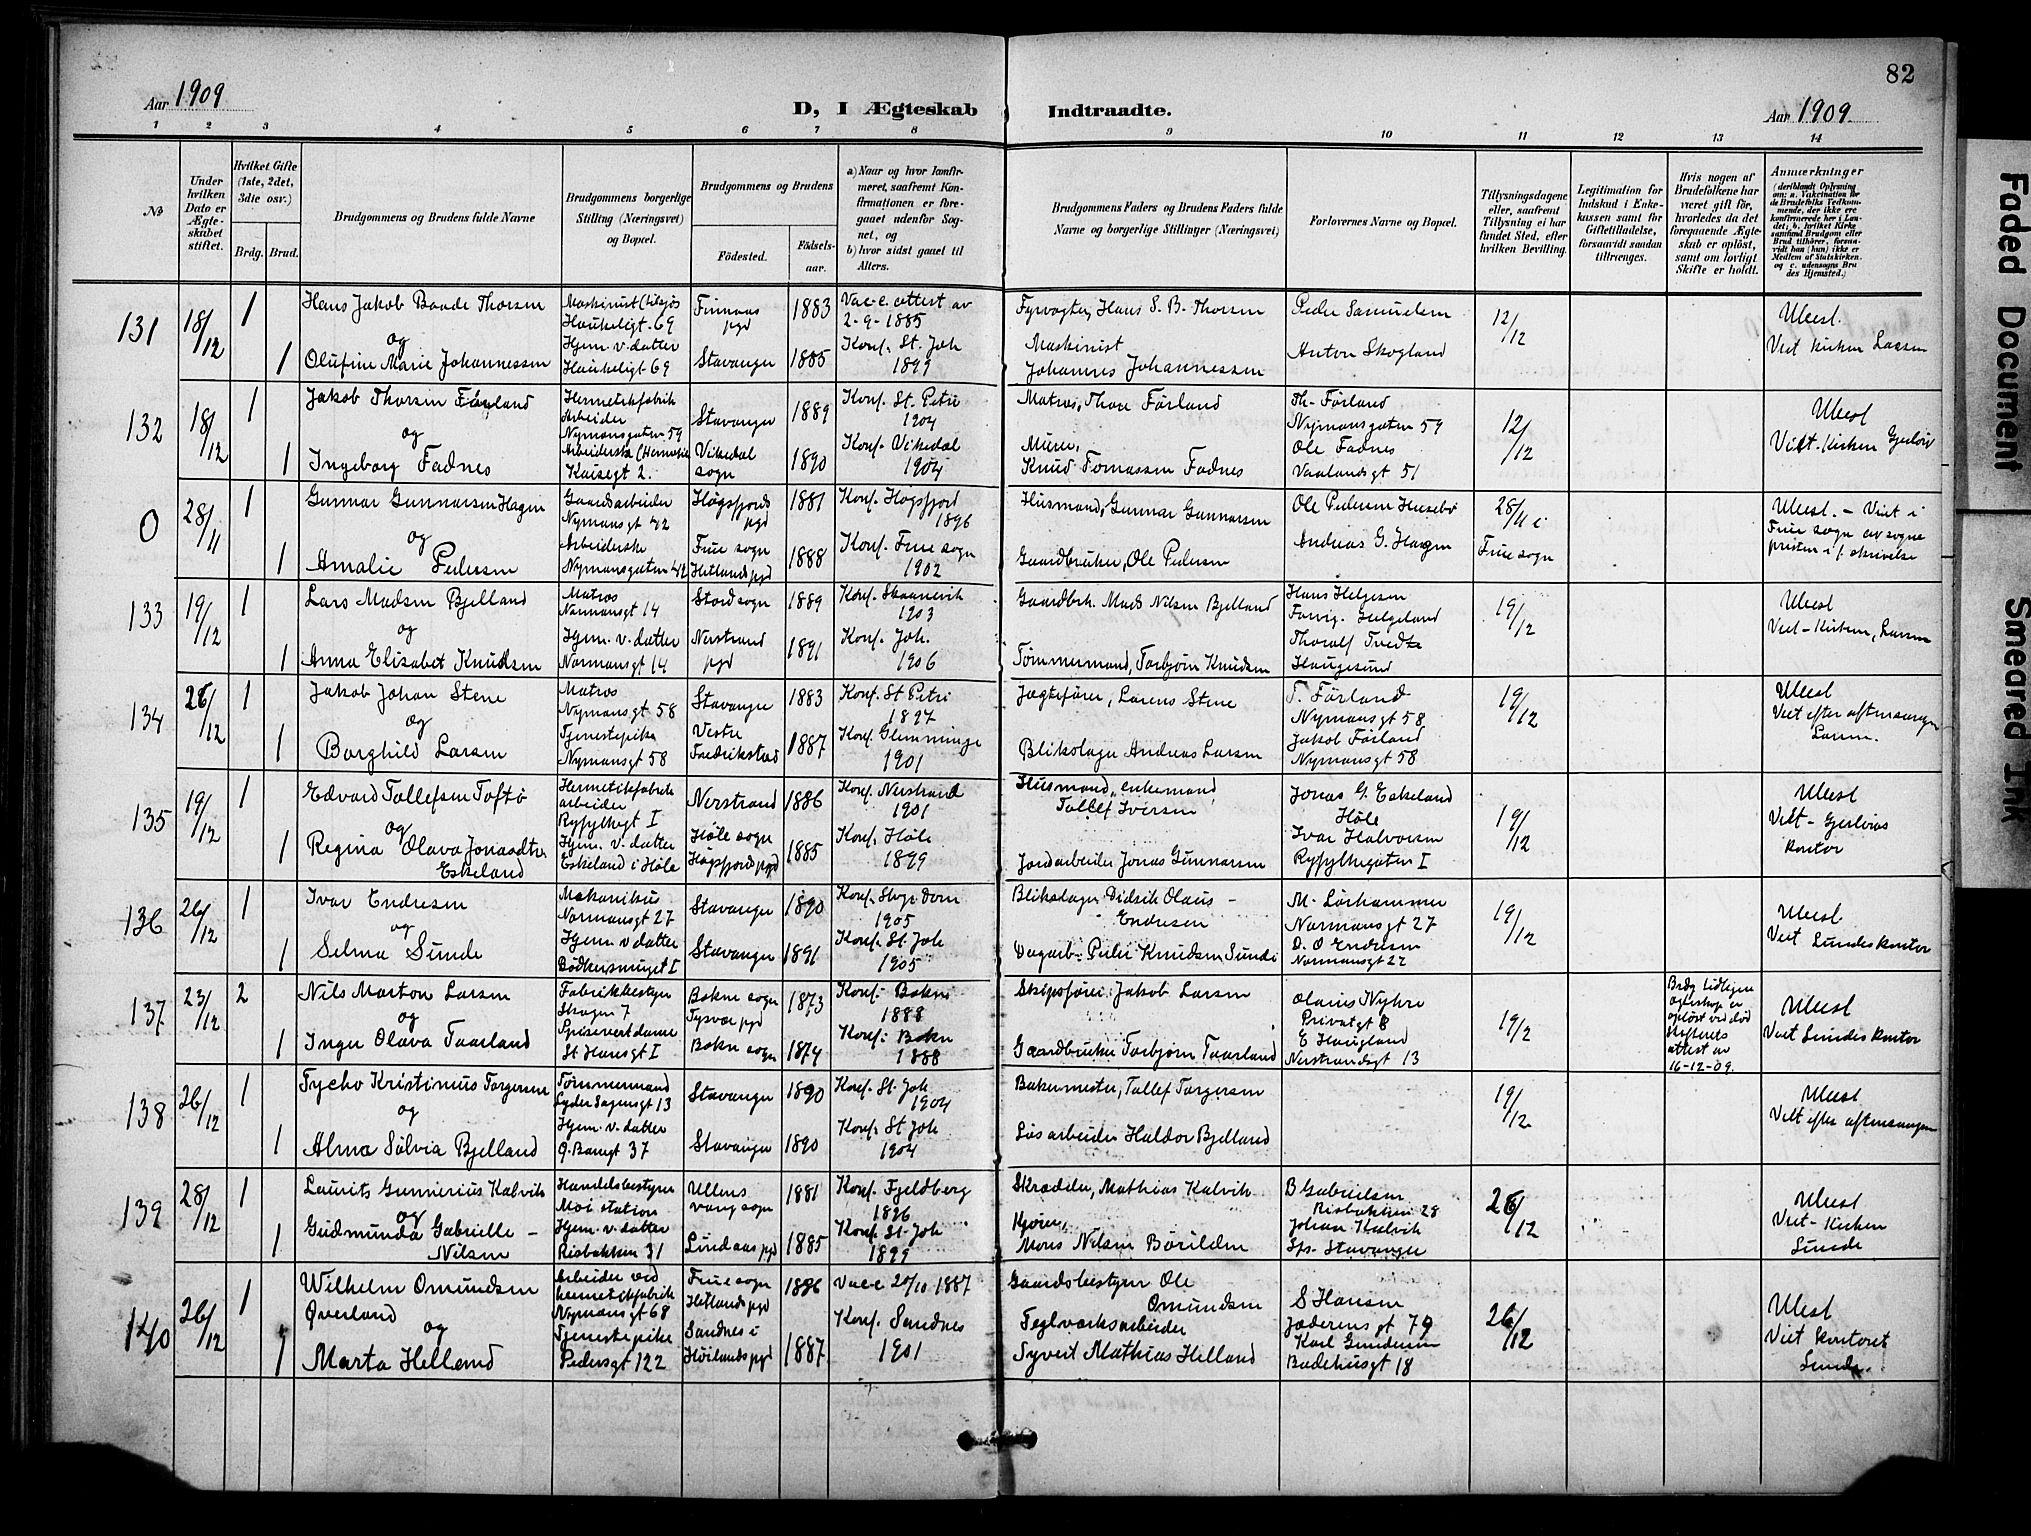 82
Aar 1909
D, I Ægteskab Indtraadte.
Aar 1909.
1 2 3 4 5 6 7 8 9 10 11 12 13 14
No
Under hvilken Dato er Ægteskabet stiftet.
Hvilket Gifte (1ste, 2det, 3die osv.)
Brdg. Brud.
Brudgommens og Brudens fulde Navne
Brudgommens borgerlige Stilling (Næringsvei) og Bopæl.
Brudgommens og Brudens
Fødested. Fødselsaar.
a) Naar og hvor konfirmeret, saafremt Konfirmationen er foregaaet udenfor Sognet, og
b) hvor sidst gaaet til Alters.
Brudgommens Faders og Brudens Faders fulde Navne og borgerlige Stillinger (Næringsvei)
Forlovernes Navne og Bopæl.
Tillysningsdagene eller, saafremt Tillysning ei har fundet Sted, efter hvilken Bevilling.
Legitimation for Indskud i Enkekassen samt for Giftetilladelse, forsaavidt saadan tiltrænges.
Hvis nogen af Brudefolkene har været gift før, hvorledes da det foregaaende Ægteskab er opløst, samt om lovligt Skifte er holdt.
Anmærkninger
131 18/12 1 Hans Jakob Baade Thorsen
Haukeligt 69 Finnaas pgd 1883 Vac. attest av 2-9-1885
Fyrvogter, Hans S. B. Thorsen Peder Samuelsen 12/12 Ubesl.
og
1 Olufine Marie Johannessen Hjem. v. datter Haukeligt 69 Stavanger 1885 Konf. St. Joh 1899
Maskinist Johannes Johannessen Anton Skogland Viet Kirken Larsen
132 18/12 1 Jakob Thorsen Førland Hermetikfabrik Arbeider Nymansgaten 59 Stavanger 1889 Konf. St. Petri 1904
Matros, Thore Førland Th. Førland Nymansgaten 59 12/12 Ubesl
og
1 Ingeborg Fadnes Kaisegt 2. Vikedal sogn 1890 Konf. Vikedal 1904
Murer, Knud Tomassen Fadnes Ole Fadnes Vaalandsgt 51
0 28/11 1 Gunnar Gunnarsen Hagen Gaardsarbeider Nymansgt 42 Høgsfjords pgd 1881 Konf. Høgsfjord 1896
Husmand, Gunnar Gunnarsen Ole Pedersen Husebø 28/11 i Frue sogn Ubesl. - Viet i Frue sogn av sogne presten i f. skrivelse
og
1 Amalie Pedersen Arbeiderske Nymansgaten 42 Frue sogn Hetlands pgd 1888 Konf. Frue sogn 1902
Gaardbruker, Ole Pedersen Andreas G. Hagen
133 19/12 1 Lars Madsen Bjelland Matros Normansgt 14 Stord sogn 1889 Konf. Skaanevik 1903
Gaardbrk. Mads Nilsen Bjelland Hans Helgesen 19/12 Ubesl
og
1 Anna Elisabet Knudsen Hjem. v. datter Normansgt 14 Nerstrand pgd 1891 Konf. Joh. 1906
Tømmermand, Torbjørn Knudsen Haugesund Viet - Kirken, Larsen
134 26/12 1 Jakob Johan Stene Matros Nymansgt 58 Stavanger 1883 Konf. St Petri 1897
Jægtefører, Larens Stene T. Førland Nymansgt 58 19/12 Ubesl
og
1 Borghild Larsen Tjenestepike Nymansgt 58 Vestre Fredrikstad 1887 Konf. Glemminge 1901
Blikslager Andreas Larsen Jakob Førland Nymansgt 58 Viet efter aftensangen Larsen.
135 19/12 1 Edvard Tollefsen Toftø Hermetikfabrik arbeider Ryfylkegt I Nerstrand 1886 Konf. Nerstrand 1901
Husmand, enkemand, Tollef Iversen Jonas G. Eskeland Høle 19/12 Ubesl
og
1 Regina Olava Jonasdtr Eskeland Hjem. v. datter Eskeland i Høle Høle sogn Høgsfjord pgd 1885 Konf. Høle 1899
Jordarbeider Jonas Gunnarsen Ivar Halvorsen Ryfylkegaten I Viet - Gjerløws kontor
136 26/12 1 Ivar Endresen Mekanikus Normansgt 27 Stavanger 1890 1905
Blikslager Didrik Olaus - Endresen Normansgt 27 19/12 Ubesl
og
1 Selma Sunde Hjem. v datter Stavanger 1891 Konf. St. Joh 1905
Dagarb. Peder Knudsen Sunde D. O Endresen Normansgt 27 Viet Sundes kontor
137 23/12 2 Nils Morton Larsen Fabrikbestyr Skagen 7 Bokne sogn Tysvær pgd 1873 Konf: Bokn 1888
Skipsfører: Jakob Larsen Privatgt 8 19/12 Brdg tidligere egteskap er opløst ved død Skifterets attest av 16-12-09. Ubesl
og
1 Inger Olava Taarland St Hansgt I Bokn sogn 1874 Konf: Bokn 1888
Gaardbruker Torbjørn Taarland E Haugland Nerstrandsgt 13 Viet Sundes kontor
138 26/12 1 Tycho Kristinius Torgersen Tømmermand Lyder Sagensgt 13 Stavanger 1890 Konf. St. Joh 1904
Bakermester, Tollef Torgersen 19/12 Ubesl
og
1 Alma Sølvia Bjelland Hjem. v. datter 37 Stavanger 1890 Konf. St Joh 1904
Løsarbeider Haldor Bjelland Viet efter aftensangen
139 28/12 1 Laurits Gunnerius Kalvik Handelsbestyrer Moi station Ullensvang sogn 1881 Konf. Fjeldberg 1896
Skrædder, Mathias Kalvik B Gabrielsen Risbakken 28 26/12 Ubesl
og
1 Gudmunda Gabrielle - Nilsen Hjem. v. datter Risbakken 31 Lindaas pgd 1885 Konf. St. Joh 1899
Kjører, Mons Nilsen Børilden Johan Kalvik Stavanger Viet - Kirken Sunde
140 26/12 1 Wilhelm Omundsen Øverland Arbeider ved hermetikfabrik Nymansgt 68 Frue sogn Hetlands pgd 1886 Vacc 20/10 1887
Gaardsbestyrer Ole Omundsen S Hansen Jæderensgt 79 26/12 Ubesl
og
1 Marta Helland Tjenestepike Pedersgt 122 Sandnes i Høilands pgd 1887 Konf. Sandnes 1901
Teglverksarbeider Syvert Mathias Helland Karl Gundersen Badehusgt 18 Viet kontoret Sunde.
Faded Document
Smeared Ink